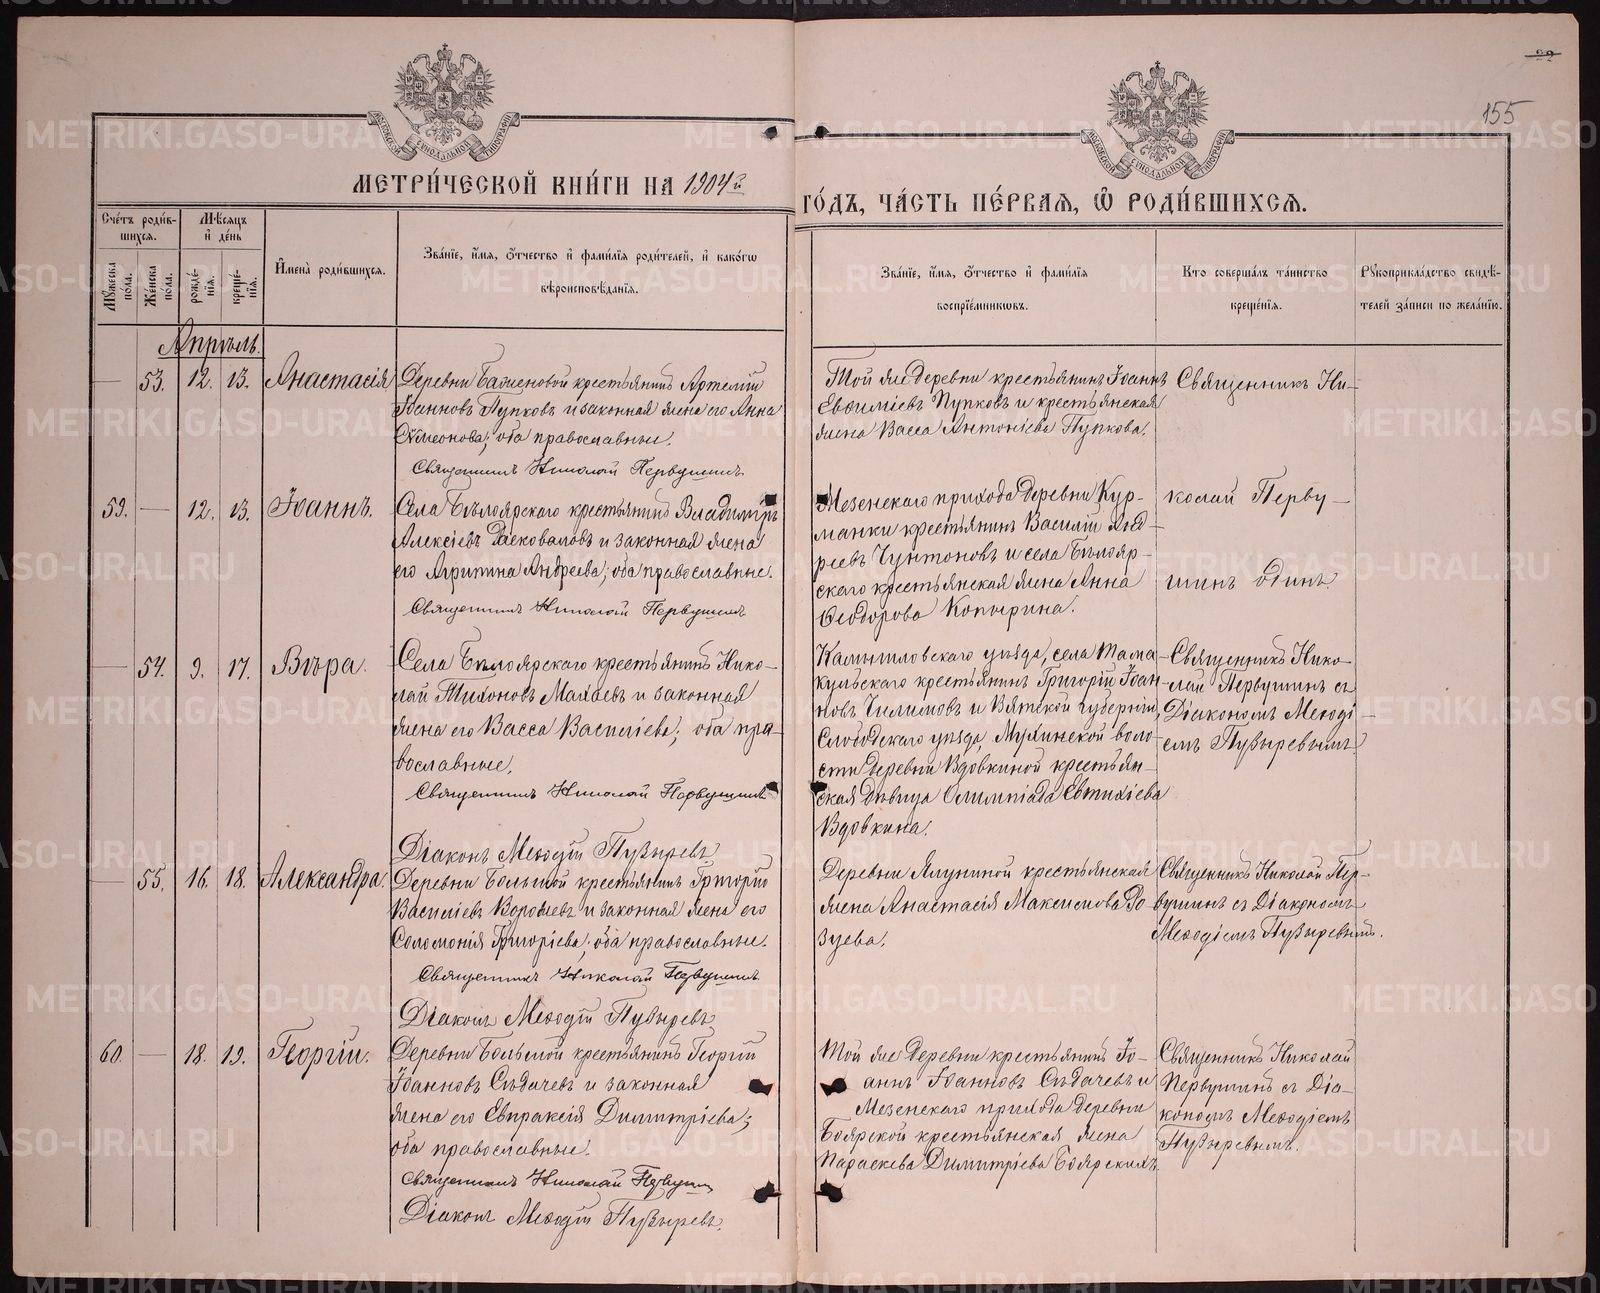 155
МЕТРИ́ЧЕСКОЙ КНИ́ГИ НА 1904й
ГО́ДЪ, ЧА́СТЬ ПЕ́РВАЯ, Ѡ РОДИ́ВШИХСЯ.
Сче́тъ роди́в-
шихся.
Мꙋжеска по́ла.
Же́нска по́ла.
Мѣ́сяцъ
и де́нь
рожде́-
нїя.
креще́-
нїя.
Имена̀ роди́вшихся.
Зва́нїе, и́мя, ѻ́тчество и фами́лїя роди́телей, и како́гѡ
вѣроисповѣ́данїя.
Зва́нїе, и́мя, ѻ́тчество и фами́лїя
воспрїе́мникѡвъ.
Кто соверша́лъ та́инство
креще́нїя.
Рꙋкоприкла́дство свидѣ́-
телей за́писи по жела́нїю.
Апрѣль.
— 53. 12. 13. Анастасія
Деревни Баженовой крестьянинъ Артемій
Іоанновъ Пупковъ и законная жена его Анна
Сѵмеонова; оба православные.
Священникъ Николай Первушинъ
Той же деревни крестьянинъ Іоаннъ
Евѳиміевъ Пупковъ и крестьянская
жена Васса Антоніева Пупкова.
Священникъ Ни-
59. — 12. 13. Іоаннъ.
Села Бѣлоярскаго крестьянинъ Владиміръ
Алексіевъ и законная жена
его Агрипина Андреева; оба православные.
Священникъ Николай Первушинъ
Мезенскаго прихода деревни Кур-
манки крестьянинъ Василій Анд-
реевъ Чунтоновъ и села Бѣлояр-
скаго крестьянская жена Анна
Ѳеодорова Копырина.
колай Перву-
шинъ одинъ.
— 54. 9. 17. Вѣра.
Села Бѣлоярскаго крестьянинъ Нико-
лай Тихоновъ Махаевъ и законная
жена его Васса Василіева; оба пра-
вославные.
Священникъ Николай Первушинъ
Діаконъ Меѳодій Пузыревъ
Камышловскаго уѣзда, села Тама-
кульскаго крестьянинъ Григорій Іоан-
новъ Чилимовъ и Вятской губерніи,
Слободскаго уѣзда, Мухинской воло-
сти деревни Вдовкиной крестьян-
ская дѣвица Олимпіада Евтихіева
Вдовкина.
Священникъ Нико-
лай Первушинъ съ
Діакономъ Меѳоді-
емъ Пузыревымъ
— 55. 16. 18. Александра.
Деревни Большой крестьянинъ Григорій
Василіевъ Воробьевъ и законная жена его
Соломонія Григоріева; оба православные.
Священникъ Николай Первушинъ
Діаконъ Меѳодій Пузыревъ
Деревни Ялуниной крестьянская
жена Анастасія Максимова
зуева.
Священникъ Николай Пер-
вушинъ съ Діакономъ
Меѳодіемъ Пузыревымъ.
60. — 18. 19. Георгій.
Деревни Большой крестьянинъ Георгій
Іоанновъ Сѣдачевъ и законная
жена его Евпраксія Димитріева;
оба православные.
Священникъ Николай Первушинъ
Діаконъ Меѳодій Пузыревъ.
Той же деревни крестьянинъ Іо-
аннъ Іоанновъ Сѣдачевъ и
Мезенскаго прихода деревни
Боярской крестьянская жена
Параскева Димитріева Боярскихъ
Священникъ Николай
Первушинъ съ Діа-
кономъ Меѳодіемъ
Пузыревымъ.
METRIKI.GASO-URAL.RU